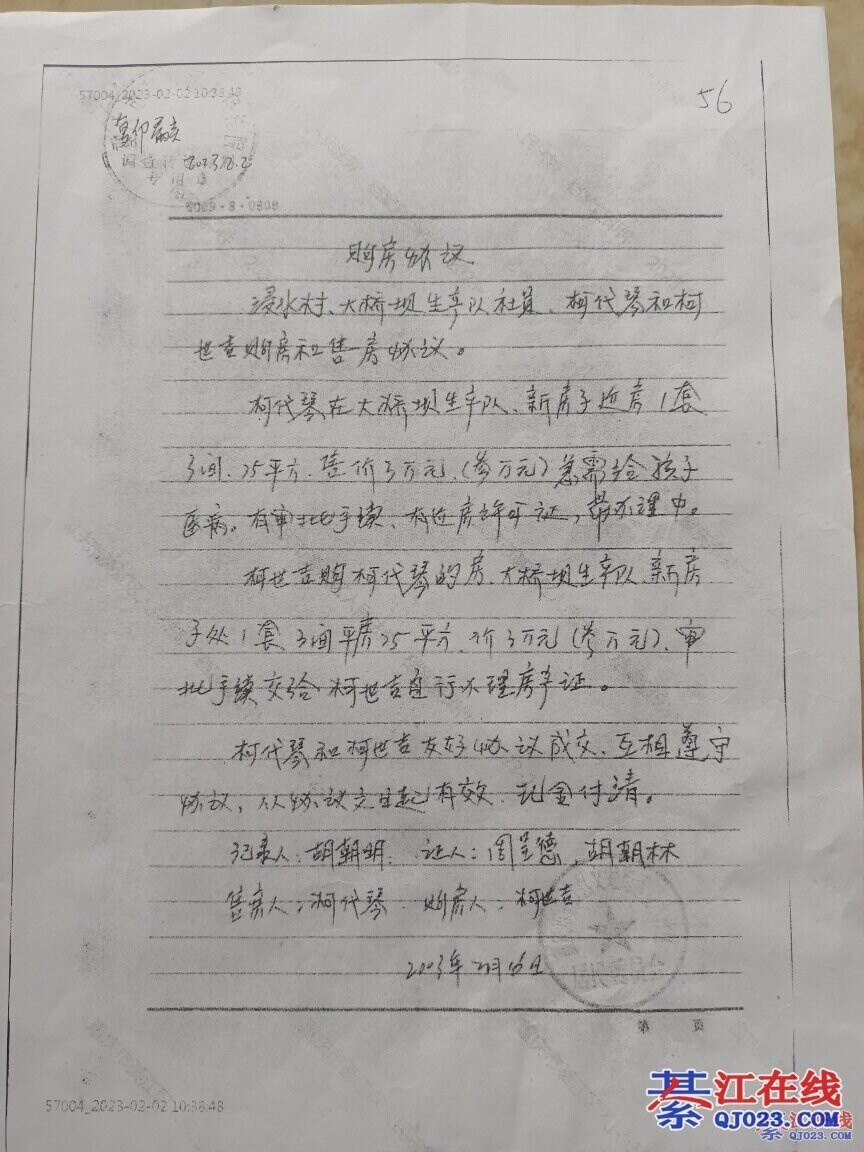 57004_2023-02-02 10:38:48
56
复印属实
2023.2.2
专用章
购房协议
浸水村、大桥坝生产队社员、柯代琴和柯
世吉购房和售房协议。
柯代琴在大桥坝生产队、新房子处房1套
3间、75平方、售价3万元、(叁万元)急需给孩子
医病。有审批手续、有建房许可证,带办理中。
柯世吉购柯代琴的房、大桥坝生产队、新房
子处1套3间平房75平方、价3万元(叁万元)、审
批手续交给柯世吉自行办理房产证。
柯代琴和柯世吉友好协议成交、互相遵守
协议,从协议之日起有效、现金付清。
记录人:胡朝明、证人:周 德、胡朝林
售房人:柯代琴 购房人:柯世吉
2003年 月 日
第 页
57004_2023-02-02 10:38:48
綦江在线
QJ023.COM